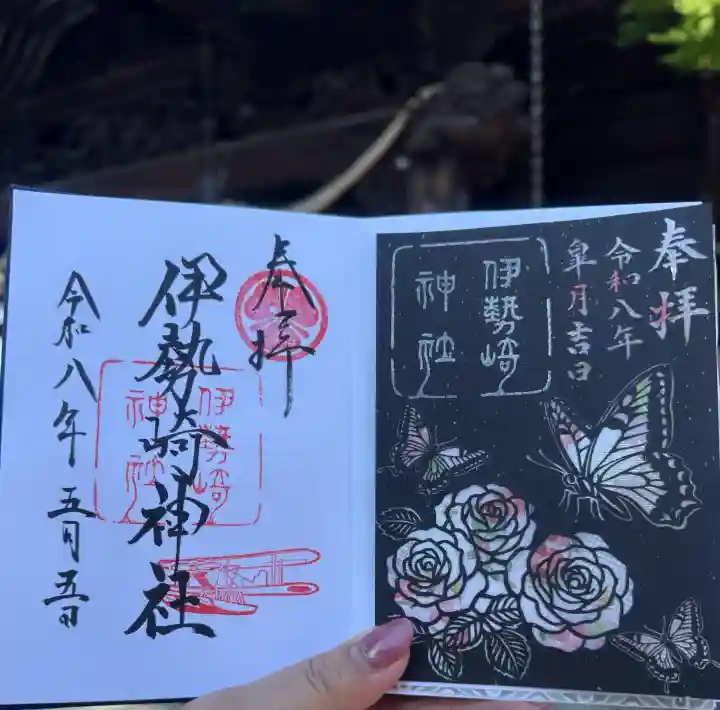 奉拝
伊勢崎神社
令和八年五月五日
伊勢崎
神社
奉拝
令和八年
皐月吉日
伊勢崎
神社